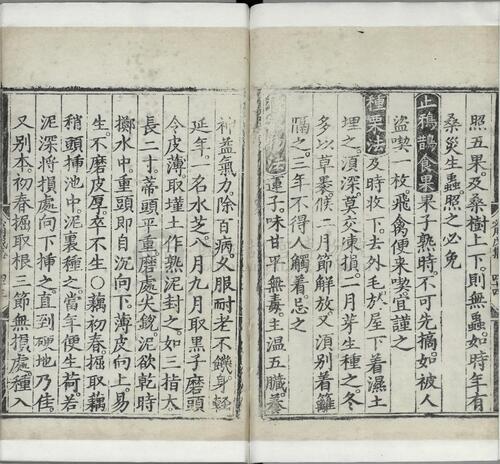 照五果。及桑樹上下。則無蟲。如時年有
桑災生蟲照之必免
止鴉鵲食果 果子熟時。不可先摘。如被人
盜喫 枚。飛禽便來喫。宜謹之
種栗法 及時收下。去外毛於屋下着濕土
埋之。須深莫交凍損。二月芽生種之。冬
多以草裹候二月節解放。又須別着籬
隔之。三年不得人觸着忌之
法 蓮子。味甘平無毒。主溫五臟。養
神益氣力。除百病。久服耐老不饑。身輕
延年。一名水芝。八月九月取黑子。磨頭
令皮薄。取墐土作熟泥封之。如三指大。
長二寸。蔕頭平重。磨處尖銳。泥欲乾時
擲水中。重頭即自沉向下。薄皮向上。易
生。不磨皮厚。卒不生○藕初春。掘取藕
稍頭揷池中。泥裏種之。當年便生荷。若
泥深將損處向下揷之。直到硬地乃佳。
又別本。初春掘取根三節無損處。種入